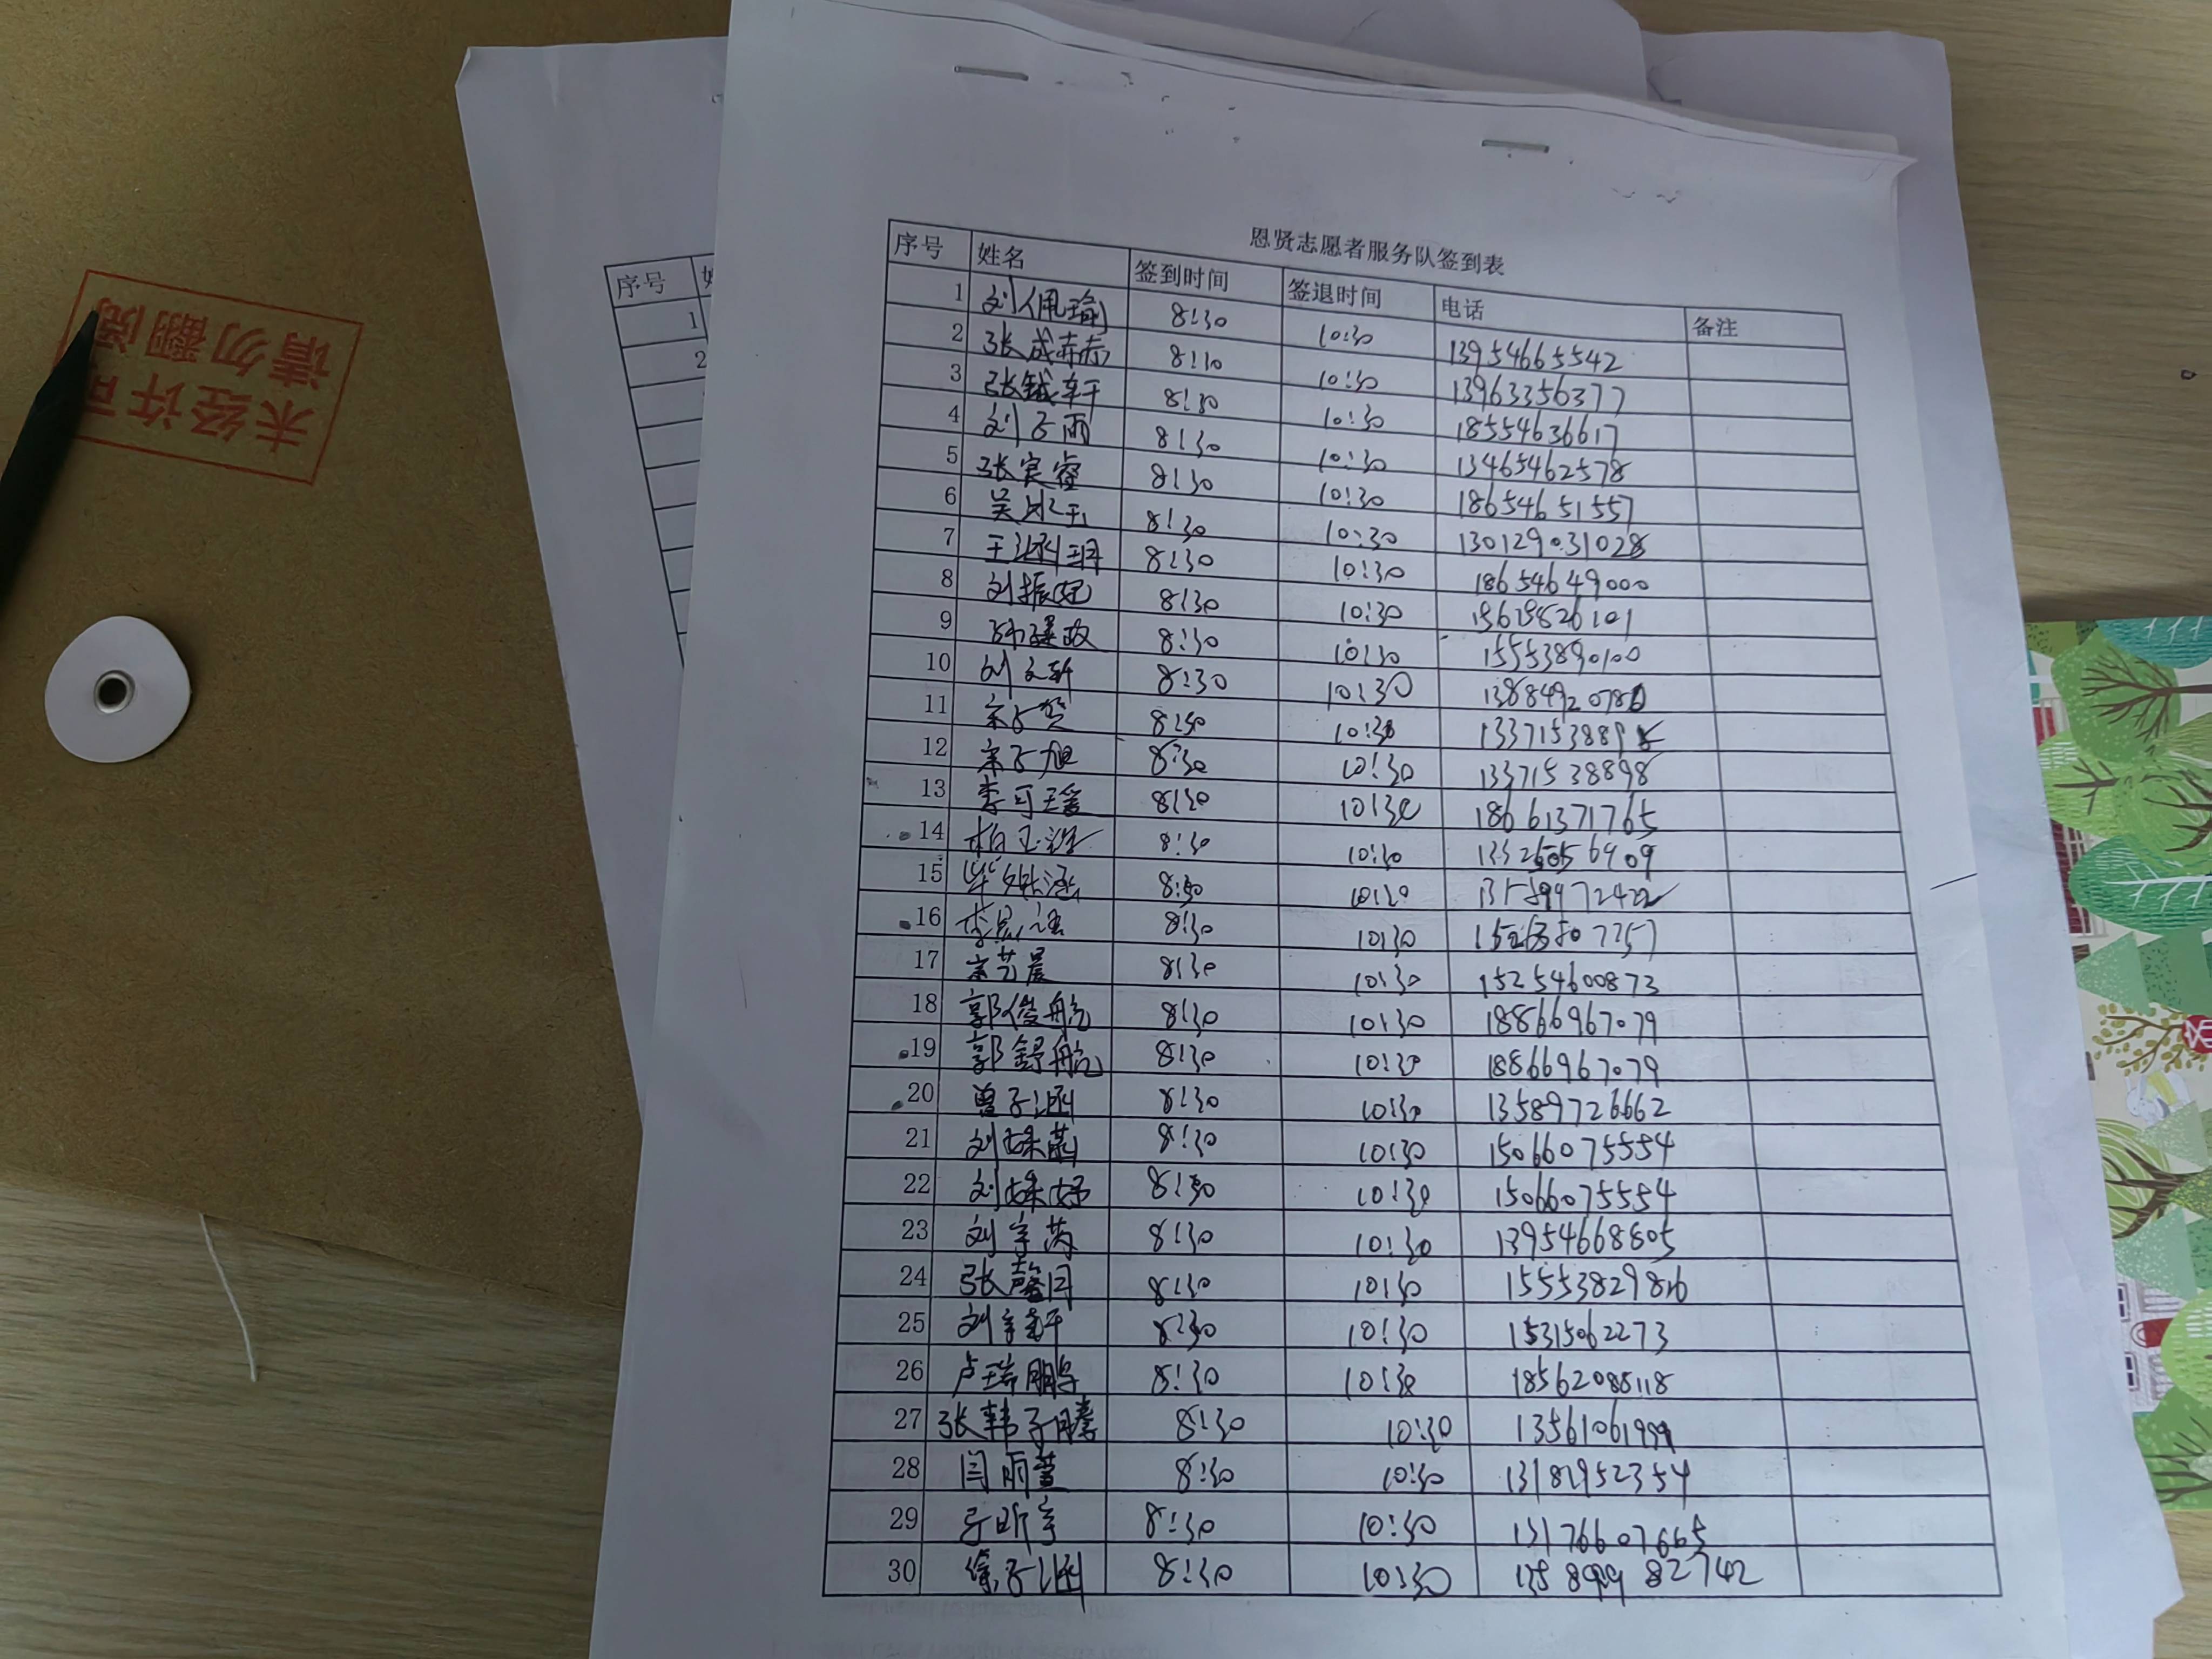 恩贤志愿者服务队签到表
序号 姓名 签到时间 签退时间 电话 备注
1 刘佩瑜 8:30 10:30 13954665542
2 张成 8:30 10:30 13963356377
3 张铖轩 8:30 10:30 18554636617
4 刘子雨 8:30 10:30 13465462578
5 张宸睿 8:30 10:30 18654651557
6 吴 8:30 10:30 130129031028
7 王涵玥 8:30 10:30 18654649000
8 刘振 8:30 10:30
9 8:30 10:30 15553890100
10 刘文轩 8:30 10:30
11 宗子 8:30 10:30
12 宗子旭 8:30 10:30 13371538898
13 李可瑶 8:30 10:30 18661371765
14 柏玉 8:30 10:30
15 毕 涵 8:30 10:30
16 李 8:30 10:30
17 宗艺晨 8:30 10:30 15254600873
18 郭俊航 8:30 10:30 18866967079
19 郭舒航 8:30 10:30 18866967079
20 曾子涵 8:30 10:30 13589726662
21 刘姝菡 8:30 10:30 15066075554
22 刘姝妤 8:30 10:30 15066075554
23 刘宇芮 8:30 10:30 13954668605
24 张馨月 8:30 10:30
25 刘 8:30 10:30 15315062273
26 卢瑞鹏 8:30 10:30 18562088118
27 张韩子腾 8:30 10:30
28 闫雨萱 8:30 10:30 13181952354
29 于昕宇 8:30 10:30 13176607665
30 徐子涵 8:30 10:30
序号
1
2
未经许可
请勿翻阅